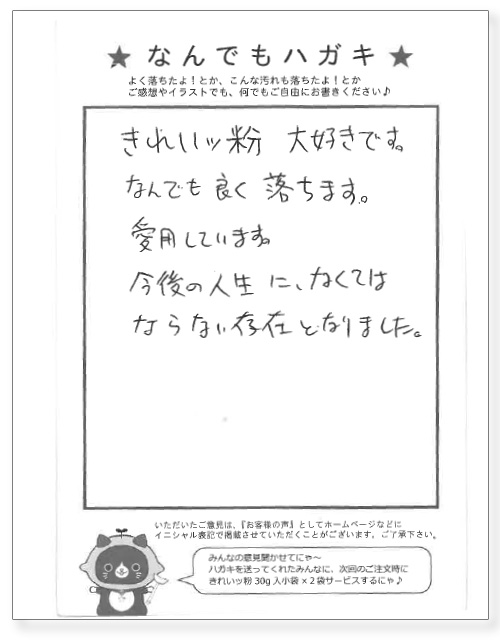 ★なんでもハガキ★
よく落ちたよ！とか、こんな汚れも落ちたよ！とか
ご感想やイラストでも、何でもご自由にお書きください♪
きれいッ粉 大好きです。
なんでも良く落ちます。
愛用しています。
今後の人生に、なくては
ならない存在となりました。
いただいたご意見は、『お客様の声』としてホームページなどに
イニシャル表記で掲載させていただくことがございます。ご了承下さい。
みんなの意見聞かせてにゃ～
ハガキを送ってくれたみんなに、次回のご注文時に
きれいッ粉 30g 入小袋×2袋サービスするにゃ♪